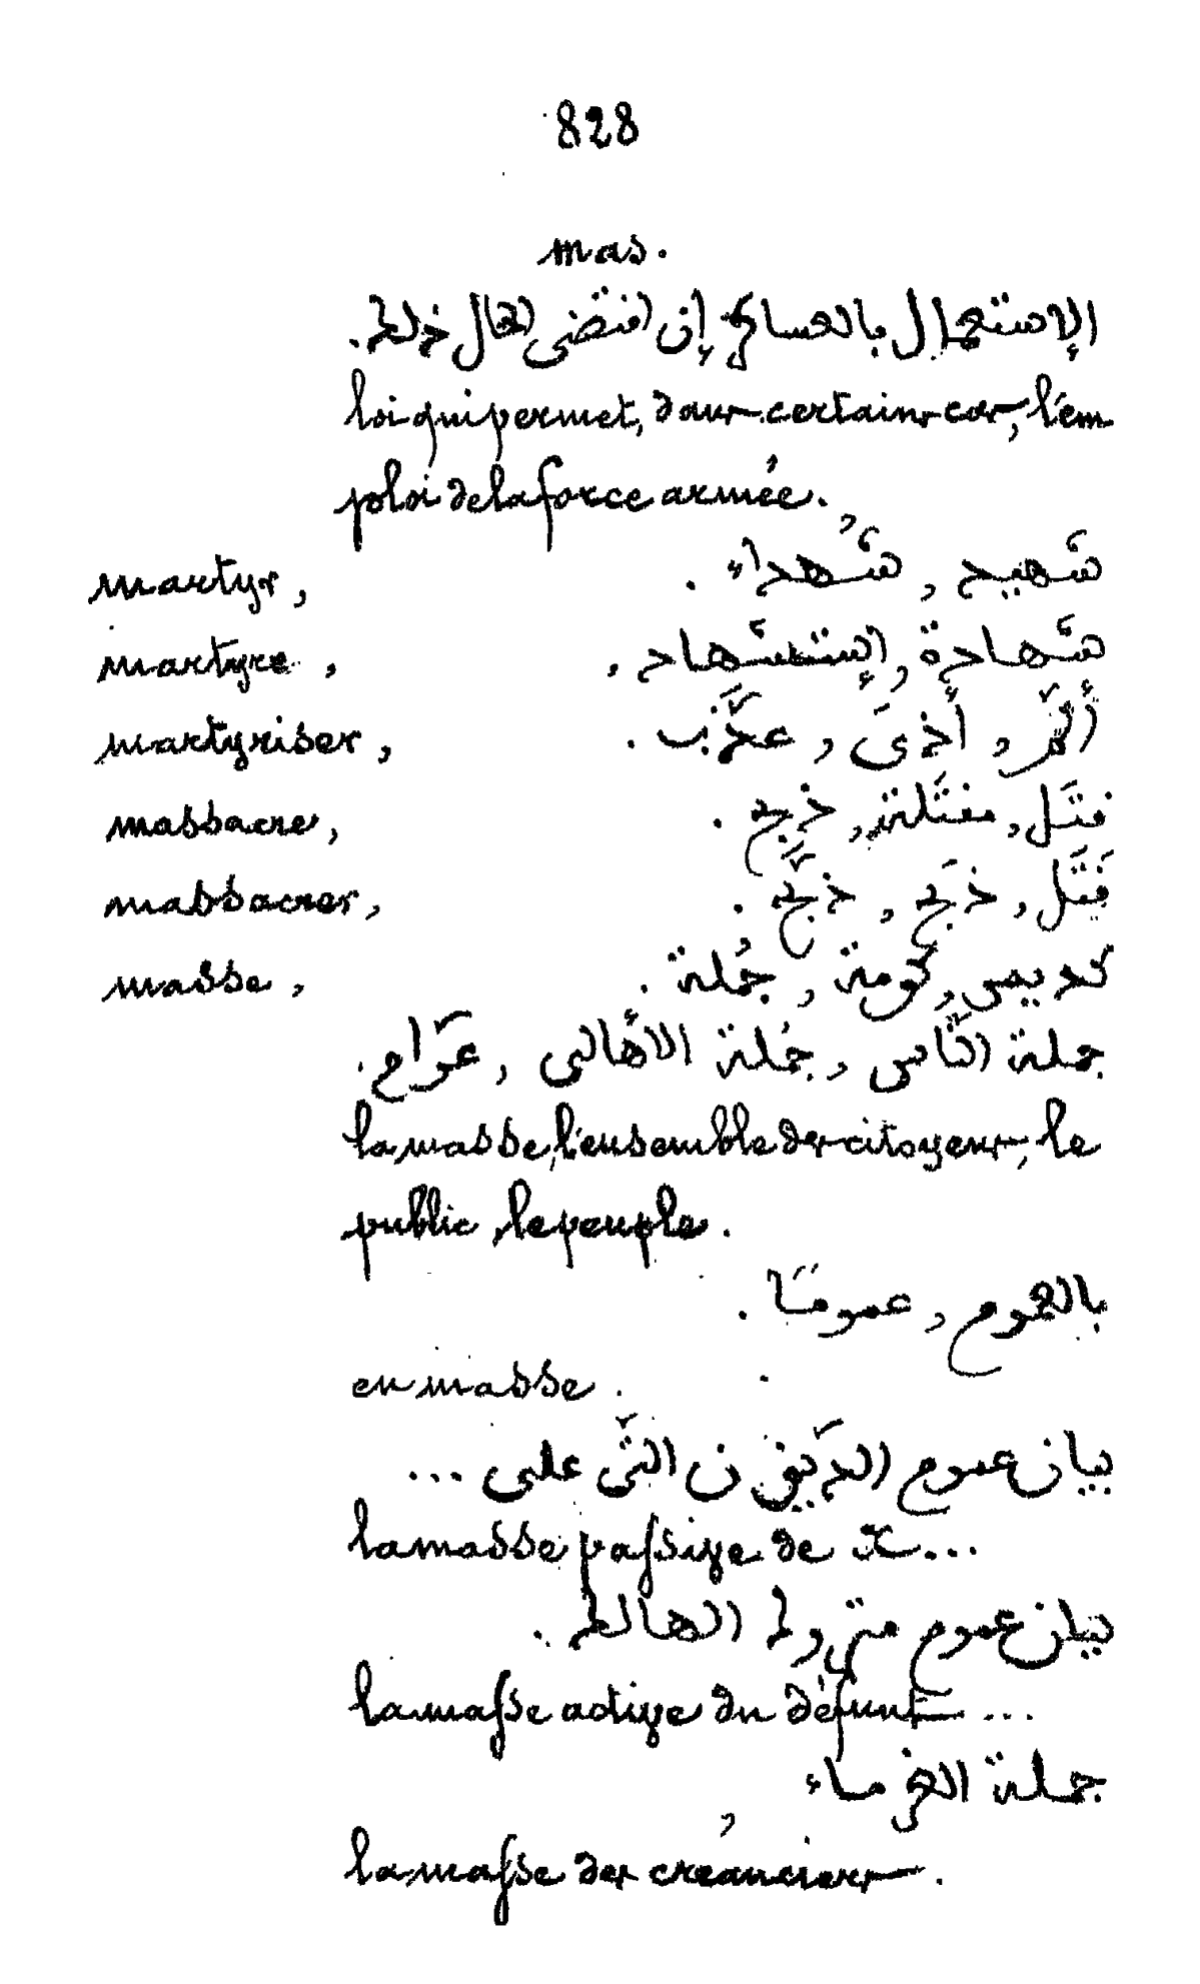 828
mas.
الاستعمال بالعساكر إن اقتضى الحال ذلك.
loi qui permet, dans certains cas, l'em
ploi de la force armée.
martyr, شَهيد , شُهَداء .
martyre , شَهادة , إستشهاد .
martyriser, أَلَّمَ , أَذى , عذَّب .
massacre, قتَل , مقتَلة , ذبح .
massacrer, قَتَّل , ذبَح , ذبَّح .
masse, كديس , كومة , جُملة .
جملة النَّاس , جُملة الأهالى , عوَّام .
la masse, l'ensemble des citoyens, le
public, le peuple.
بالعموم , عمومًا .
en masse .
بيان عموم الدَّيون التَّى على ...
la masse passive de x...
بيان عموم متروك الهالك .
la masse active du défunt ...
جملة الغرماء
la masse des créanciers.